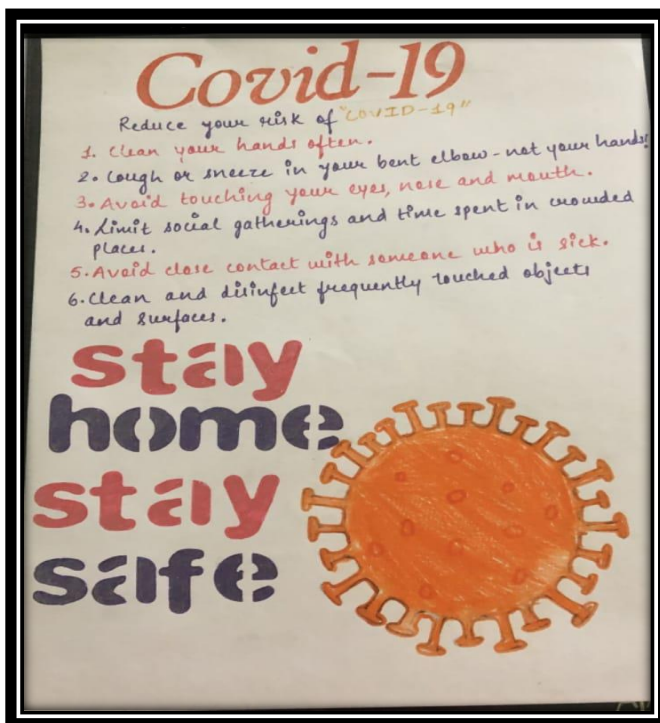 Covid-19
Reduce your risk of "COVID-19"
1. Clean your hands often.
2. Cough or sneeze in your bent elbow - not your hands!
3. Avoid touching your eyes, nose and mouth.
4. Limit social gatherings and time spent in crowded
places.
5. Avoid close contact with someone who is sick.
6. Clean and disinfect frequently touched objects
and surfaces.
stay
home
stay
safe